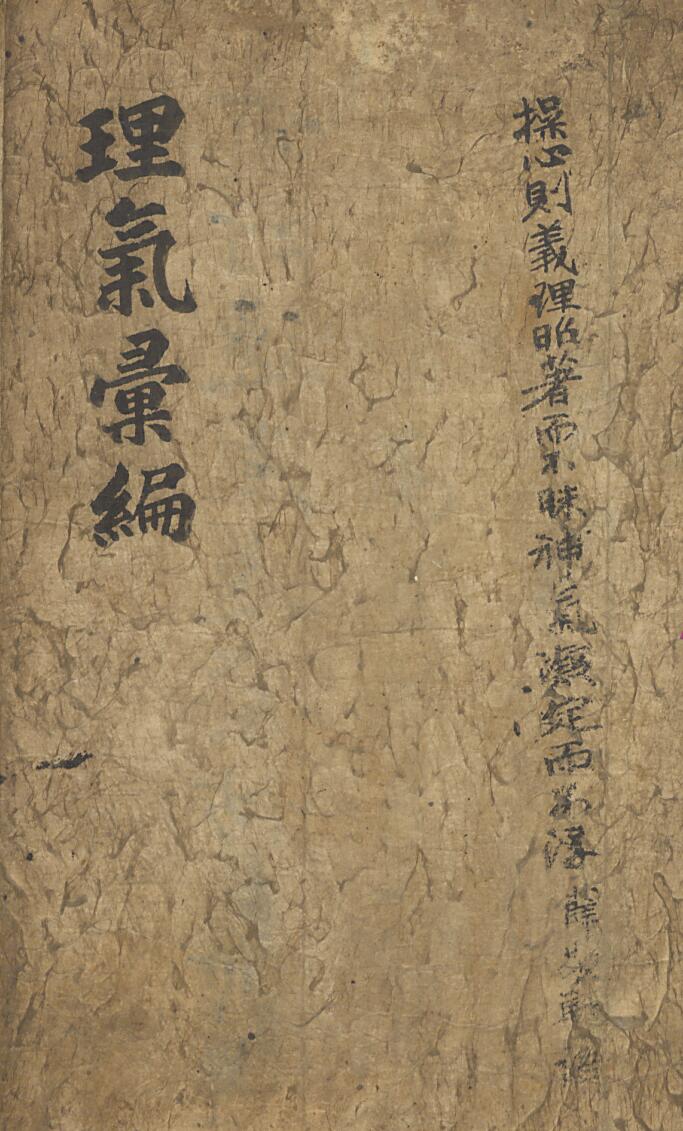 操心則義理昭著而不昧神氣凝定而不浮 薛敬軒
理氣彙編